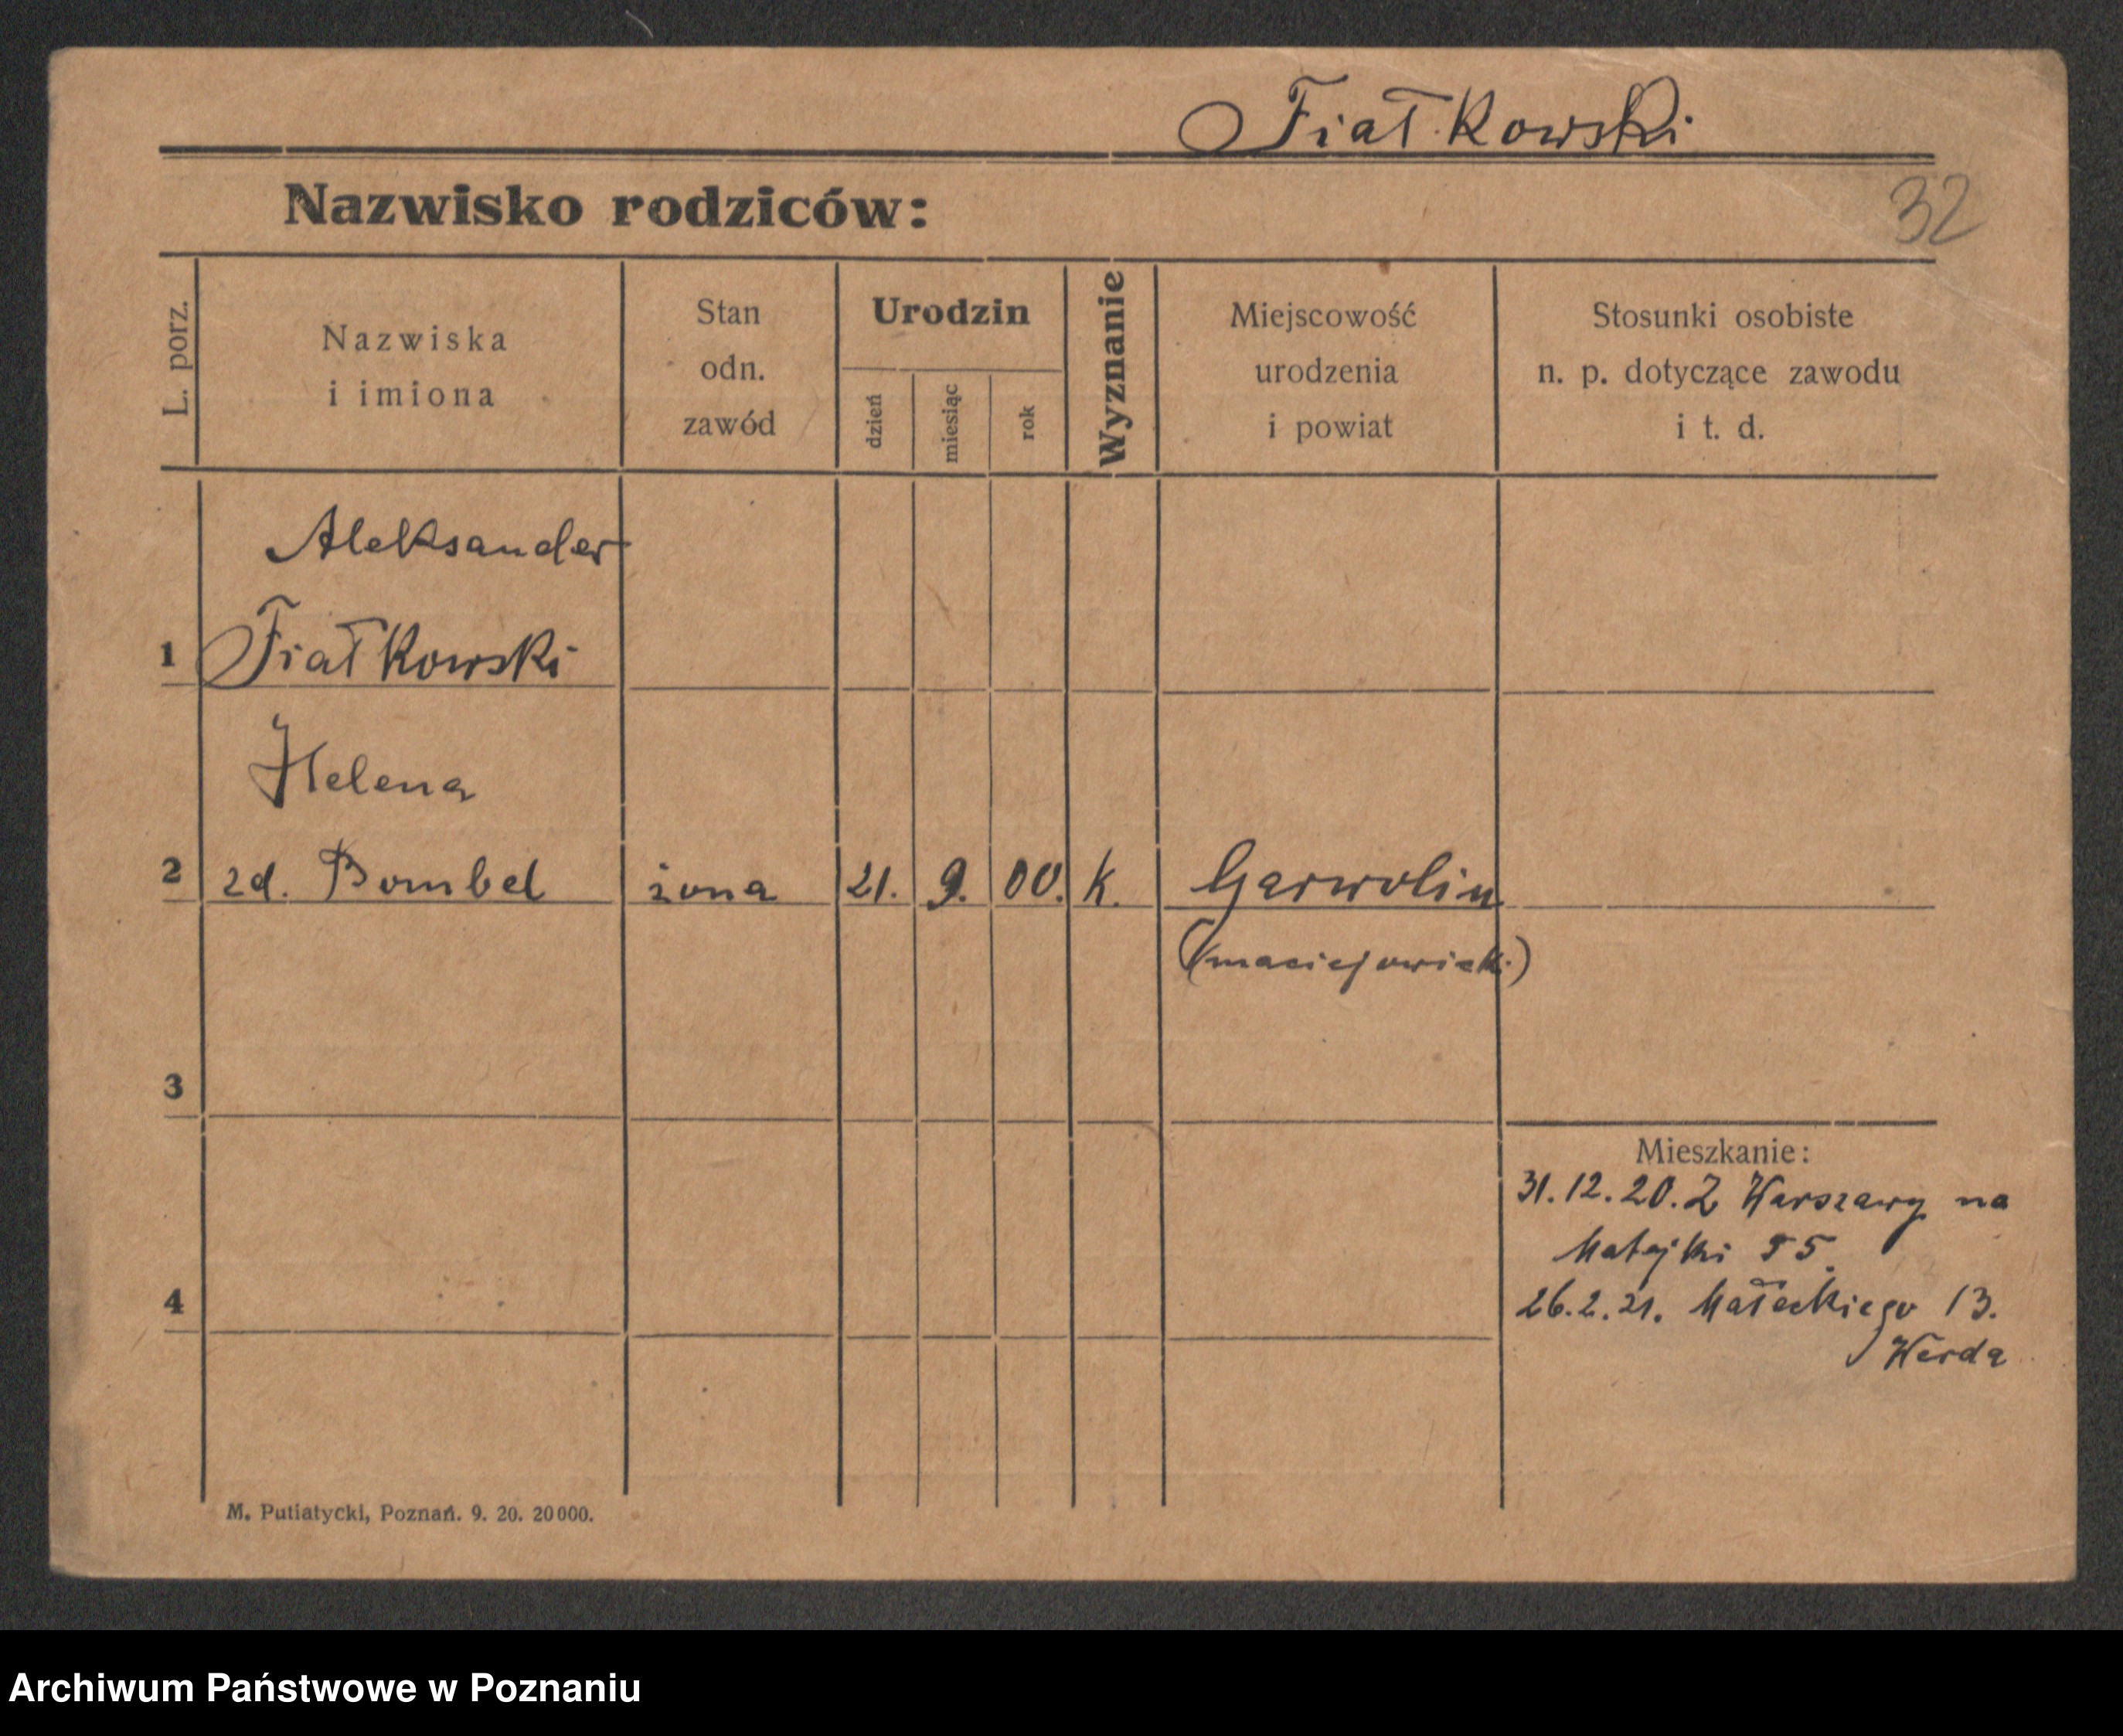 Fiałkowski
Nazwisko rodziców:
32
L. porz.
Nazwiska
i imiona
Stan
odn.
zawód
Urodzin
dzień
miesiąc
rok
Wyznanie
Miejscowość
urodzenia
i powiat
Stosunki osobiste
n. p. dotyczące zawodu
i t. d.
Aleksander
1 Fiałkowski
Helena
2 zd. Bombel żona 21. 9. 00. k. Garwolin
3
Mieszkanie:
31.12.20. Z Warszawy na
Matejki 55.
4 26.2.21. Małeckiego 13.
Werda
M. Putiatycki, Poznań. 9. 20. 20000.
Archiwum Państwowe w Poznaniu